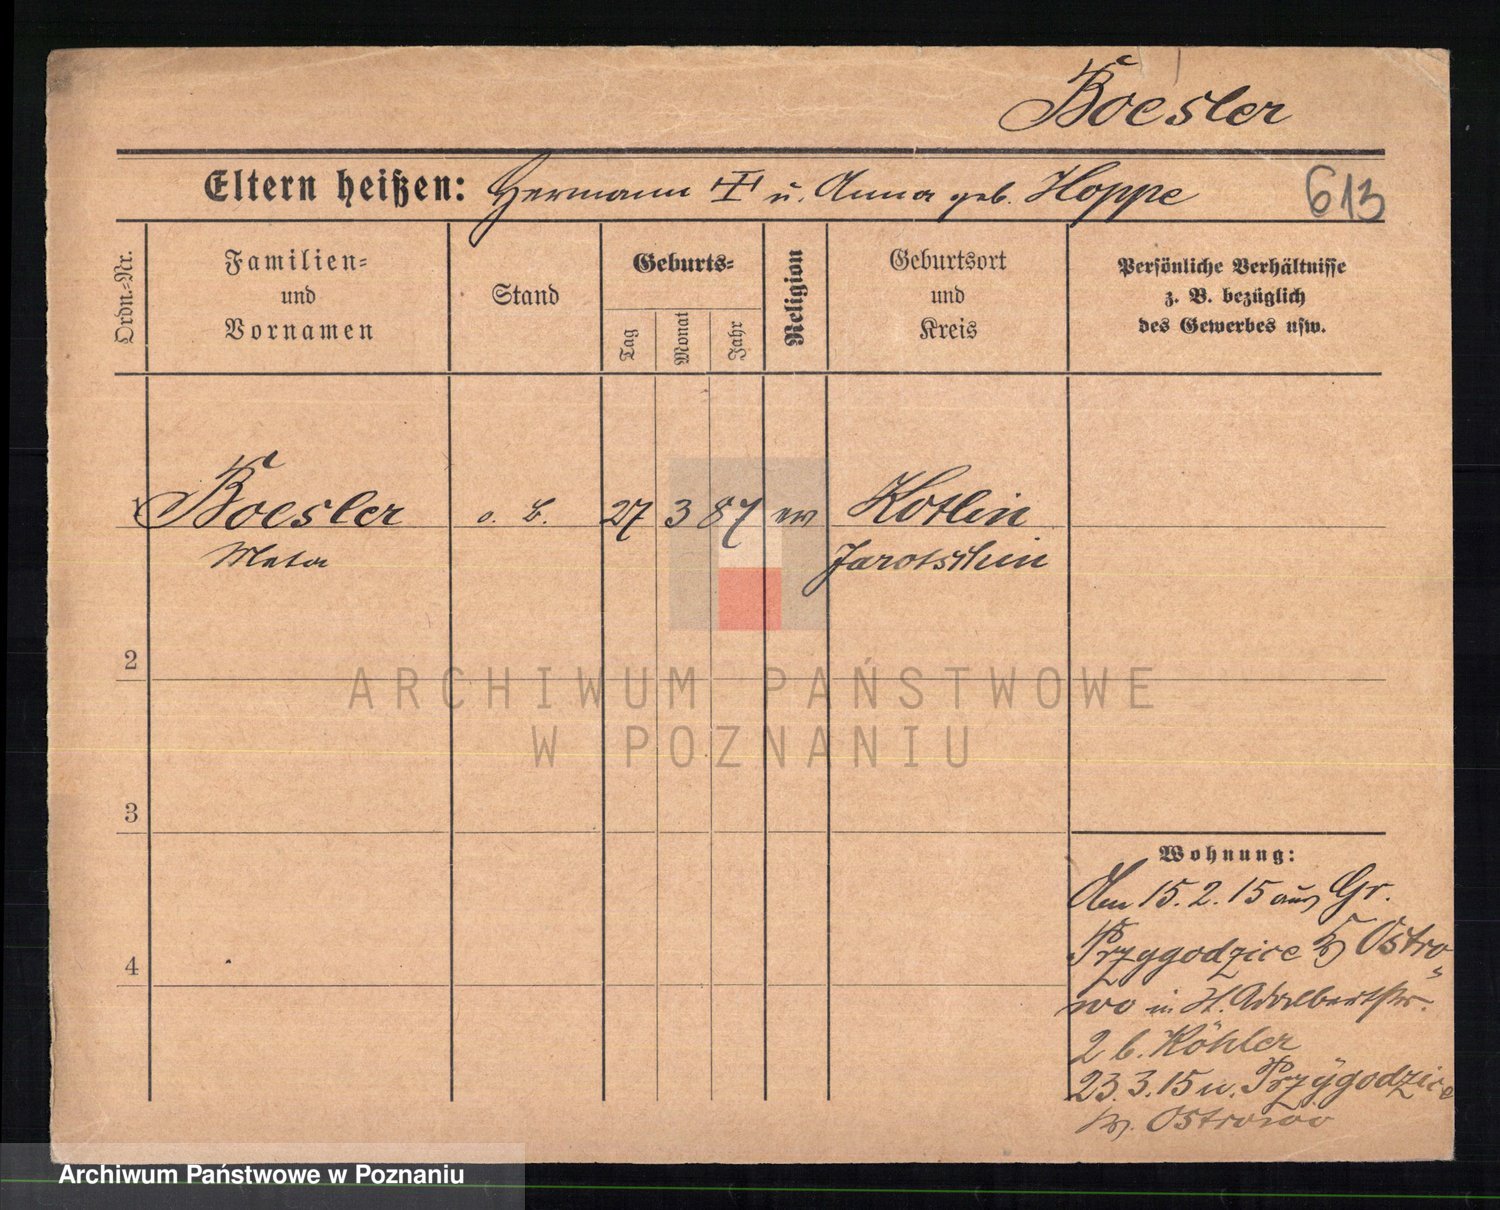 Boesler
Eltern heißen: Hermann II u. Anna geb. Hoppe 613
Ordn.-Nr.
Familien-
und
Vornamen
Stand
Geburts-
Tag
Monat
Jahr
Religion
Geburtsort
und
Kreis
Persönliche Verhältnisse
z. B. bezüglich
des Gewerbes usw.
1 Boesler o. B. 27 3 87 ev Kotlin
Meta Jarotschin
2
3
4
Wohnung:
Am 15.2.15 aus Gr.
Przygodzice Ostro-
wo in H. Adalbertstr.
2 b. Köhler
23.3.15 n. Przygodzice
Ostrowo
ARCHIWUM PAŃSTWOWE
W POZNANIU
Archiwum Państwowe w Poznaniu